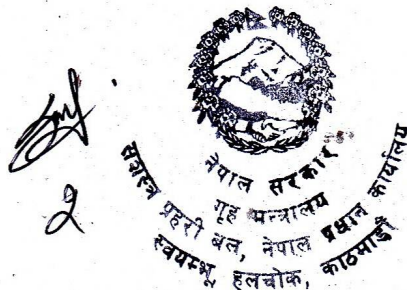 २
नेपाल सरकार
गृह मन्त्रालय
सशस्त्र प्रहरी बल, नेपाल प्रधान कार्यालय
स्वयम्भू, हलचोक, काठमाडौं